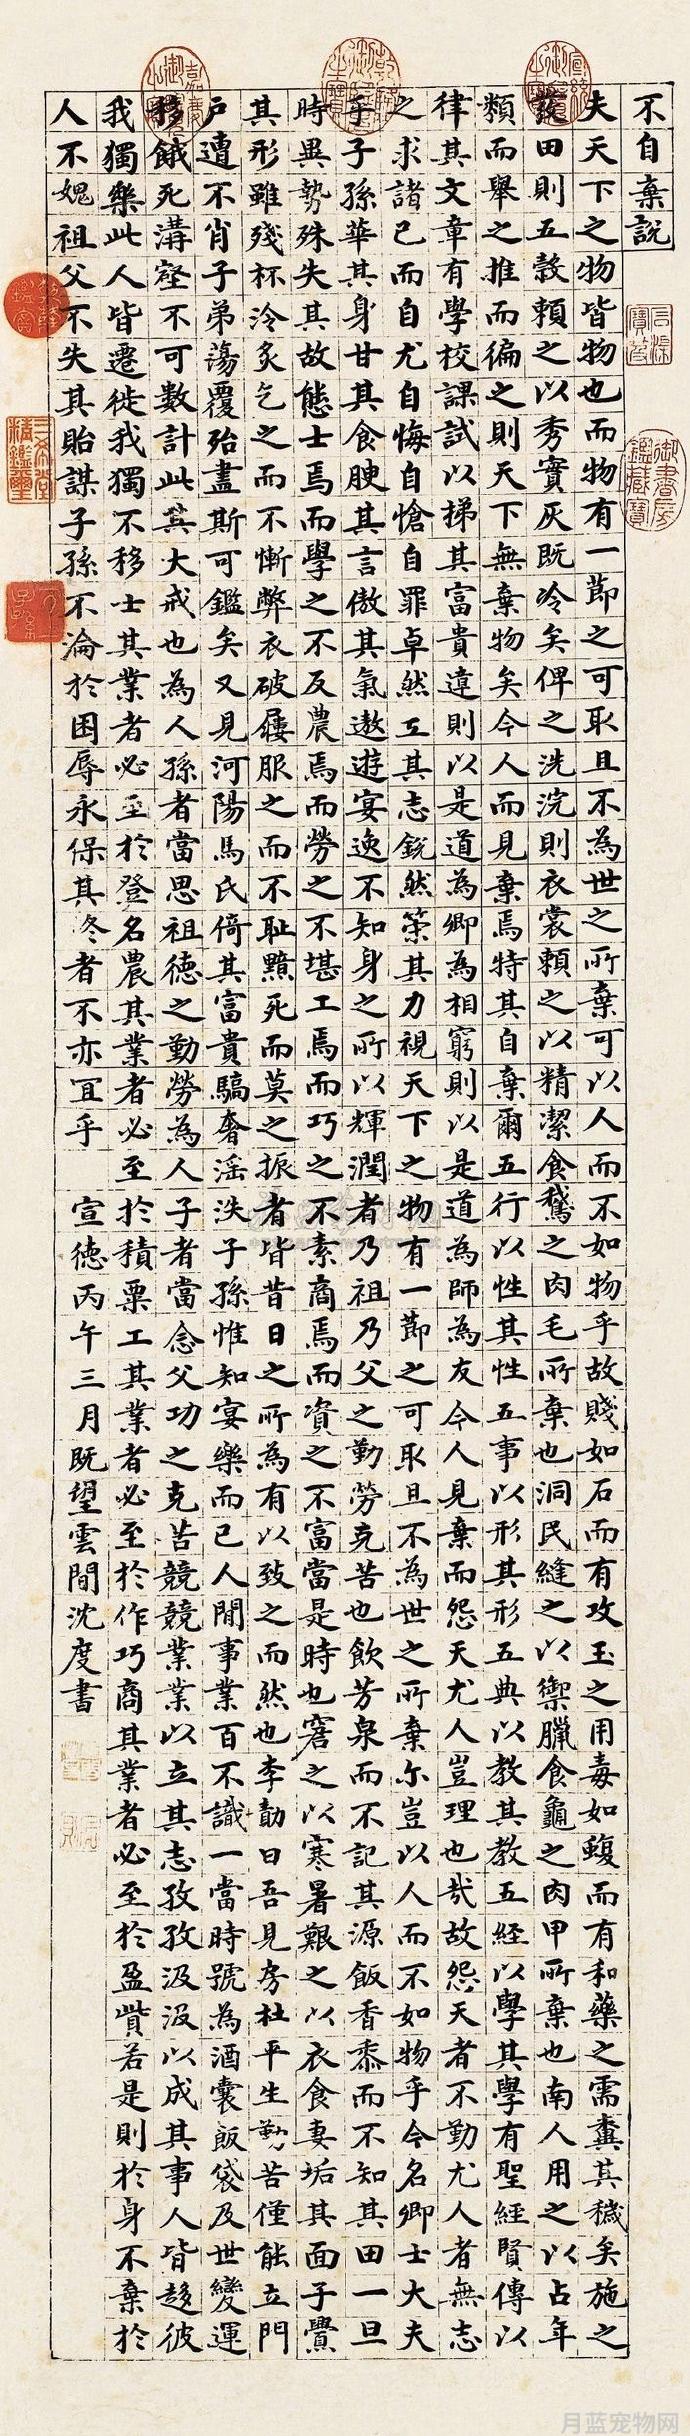 不自棄說
夫天下之物皆物也而物有一節之可取且不為世之所棄可以人而不如物乎故賤如石而有攻玉之用毒如蝮而有和藥之需糞其穢矣施之
田則五穀賴之以秀實灰既冷矣俾之洗浣則衣裳賴之以精潔食鵞之肉毛所棄也洞民縫之以禦臘食龜之肉甲所棄也南人用之以占年
類而舉之推而徧之則天下無棄物矣今人而見棄焉特其自棄爾五行以性其性五事以形其形五典以教其教五經以學其學有聖經賢傳以
律其文章有學校課試以梯其富貴達則以是道為卿為相窮則以是道為師為友今人見棄而怨天尤人豈理也哉故怨天者不勤尤人者無志
之求諸己而自尤自悔自愴自罪卓然工其志銳然策其力視天下之物有一節之可取且不為世之所棄尓豈以人而不如物乎今名卿士大夫
乎子孫華其身甘其食腴其言傲其氣遨遊宴逸不知身之所以輝潤者乃祖乃父之勤勞克苦也飲芳泉而不記其源飯香黍而不知其田一旦
時異勢殊失其故態士焉而學之不反農焉而勞之不堪工焉而巧之不素商焉而資之不富當是時也窘之以寒暑艱之以衣食妻垢其面子釁
其形雖殘杯冷炙乞之而不慚弊衣破屨服之而不恥黯死而莫之振者皆昔日之所為有以致之而然也李勣曰吾見房杜平生勤苦僅能立門
戶遭不肖子弟蕩覆殆盡斯可鑑矣又見河陽馬氏倚其富貴驕奢淫泆子孫惟知宴樂而已人間事業百不識一當時號為酒囊飯袋及世變運
移餓死溝壑不可數計此其大戒也為人孫者當思祖德之勤勞為人子者當念父功之克苦競競業業以立其志孜孜汲汲以成其事人皆趍彼
我獨樂此人皆遷徙我獨不移士其業者必至於登名農其業者必至於積粟工其業者必至於作巧商其業者必至於盈貲若是則於身不棄於
人不媿祖父不失其貽謀子孫不淪於困辱永保其終者不亦宜乎 宣德丙午三月既望雲間沈度書
御書房鑑藏寶
三希堂精鑑璽
月蓝宠物网